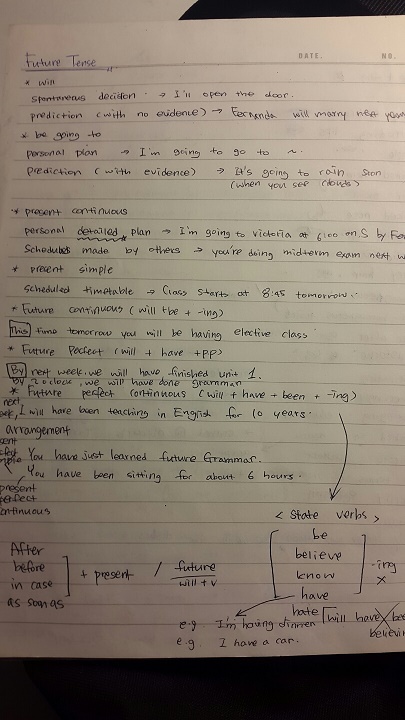 Future Tense
DATE. NO.
* will
spontaneous decision → I'll open the door.
prediction (with no evidence) → Fernanda will marry next year
* be going to
personal plan → I'm going to go to ~.
prediction (with evidence) → It's going to rain soon
(when you see clouds)
* present continuous
personal detailed plan → I'm going to victoria at 6:00 on S by Fe
Schedules made by others → you're doing midterm exam next w
* present simple
scheduled timetable → Class starts at 8:45 tomorrow.
* Future continuous (will + be + -ing)
This time tomorrow you will be having elective class
* Future Perfect (will + have + PP)
By next week, we will have finished unit 1.
by 2 o'clock, we will have done grammar
* Future perfect continuous (will + have + been + -ing)
next
eek, I will have been teaching in English for 10 years.
arrangement
sent
You have just learned future Grammar.
You have been sitting for about 6 hours.
present
perfect
ontinuous
< State verbs >
be
believe
know
have
hate
-ing
X
After
before
in case
as soon as
+ present / future
will + v
e.g. I'm having dinner
e.g. I have a car.
will have bee
believin